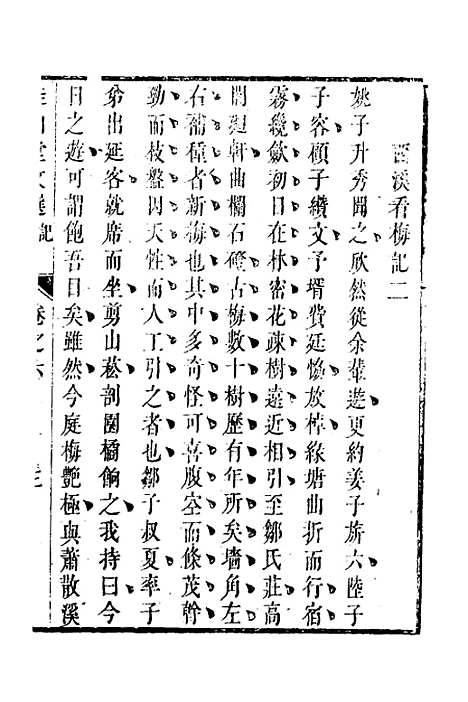 西溪看梅記二
姚子升秀聞之欣然從余輩遊更約姜子旂六陸子
子容楨子纘文予壻費廷懰放棹緣塘曲折而行宿
霧纔歛初日在林密花疎樹遠近相引至鄒氏莊高
閒廻軒曲欄石磴古梅數十樹歷有年所矣墻角左
右補種者新梅也其中多奇怪可喜腹空而條茂幹
勁而枝盤因天性而人工引之者也鄒子叔夏率子
弟出延客就席而坐剪山菘剖園橘餉之我持曰今
日之遊可謂飽吾目矣雖然今庭梅艷極與蕭散溪
堂文選記
卷之六